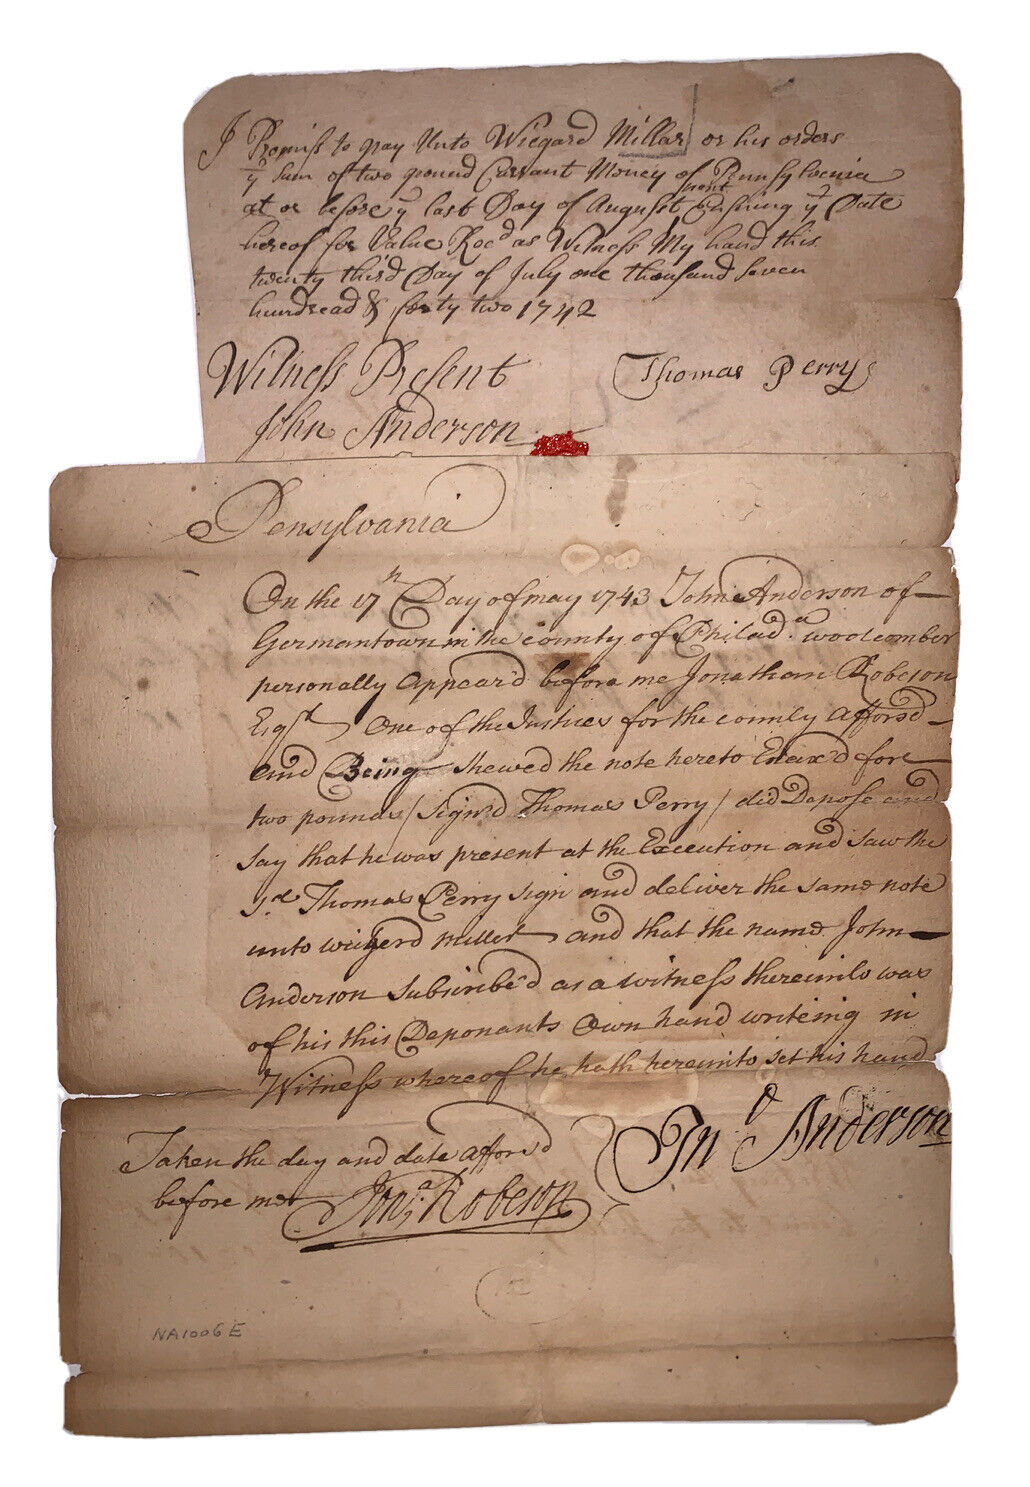 I Promiss to pay Unto Wiegard Millar or his orders
ye Sum of two pound Currant Money of Pennsylvania
at or before ye last Day of August next Ensuing ye Date
hereof for Value Rec'd as Witness My hand this
twenty third Day of July one thousand seven
hundread & forty two 1742
Witness Present
Thomas Perry
John Anderson
Pensylvania
On the 17th Day of may 1743 John Anderson of
Germantown in the county of Philada woolcomber
personally Appear'd before me Jonathan Robeson
Esqr One of the Justices for the county Afforsd
and Being shewed the note hereto Enax'd fore
two pounds (Sign'd Thomas Perry) did Depose and
say that he was present at the Execution and saw the
sd Thomas Perry sign and deliver the same note
unto wiggerd miller and that the name John
Anderson Subsiribe'd as a witness thereunto was
of his this Deponants Own hand writeing in
Witness whereof he hath hereunto set his hand
Jno Anderson
Taken the day and date affors'd
before me Jona. Robeson
NA1006E